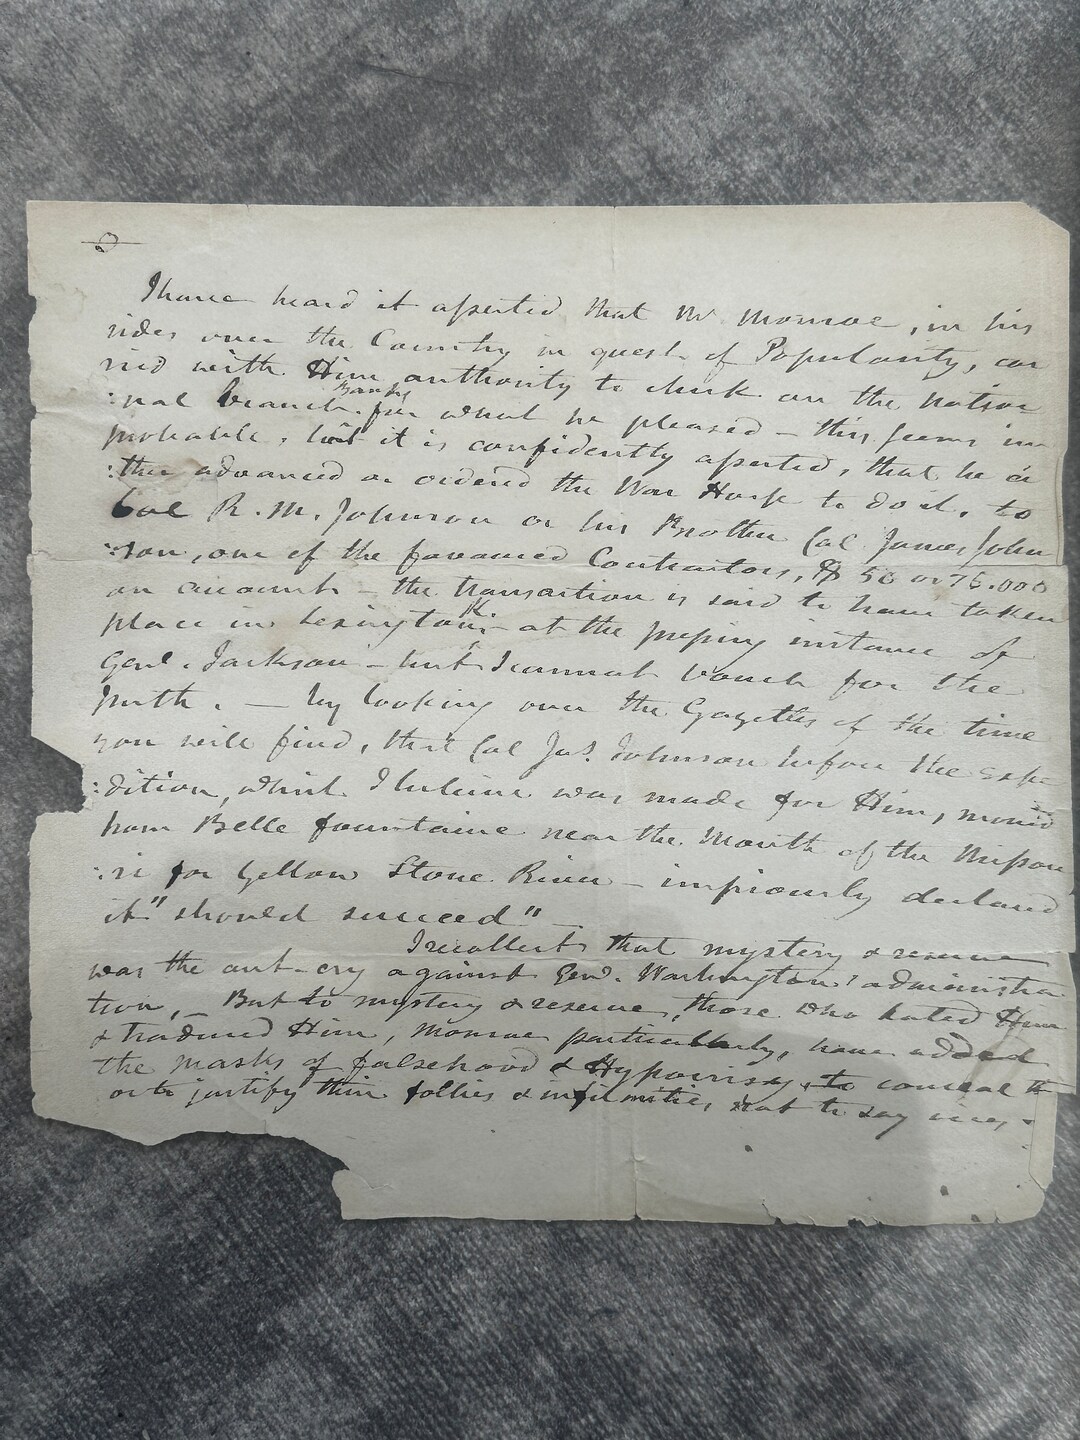 I have heard it asserted that Mr Monroe, in his
rides over the Country in quest of Popularity, car
ried with Him authority to check on the nation
:nal branch Banks for what he pleased – this seems im
probable, but it is confidently asserted, that he ei
:ther advanced or ordered the War House to do it, to
Col R. M. Johnson or his Brother Col James John
:son, one of the favoured Contractors, $ 50 or 75.000
on account – the transaction is said to have taken
place in Lexington K. – at the pressing instance of
Genl. Jackson – but I cannot vouch for the
truth. — by looking over the Gazettes of the time
you will find, that Col Jas. Johnson before the expe
:dition, which I believe was made for Him, moved
from Belle fountaine near the Mouth of the Missou
:ri for Yellow Stone River – impiously declared
it "should succeed" –
I recollect that mystery & reserve
was the out-cry against Genl. Washington's administra
tion, – But to mystery & reserve, those who hated Him
& traduced Him, Monroe particularly, have added
the masks of falsehood & Hypocrisy, to conceal th
or to justify their follies & infirmities, not to say